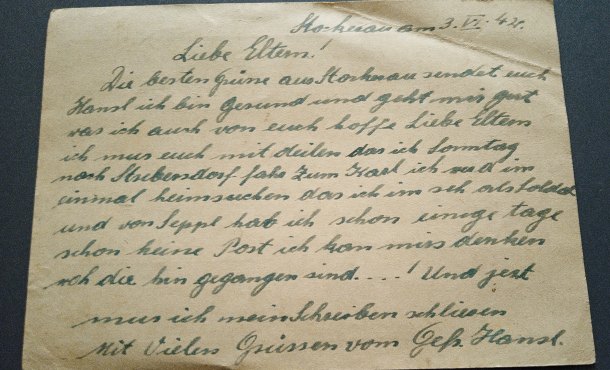 Stockerau am 3. VI. 42.
Liebe Eltern!
Die besten Grüße aus Stockerau sendet euch
Hansl ich bin gesund und geht mir gut
was ich auch von euch hoffe Liebe Eltern
ich mus euch mit deilen das ich Sonntag
nach fahr zum Karl ich werd im
einmal heimsuchen das ich im seh als Soldat
und von Seppl hab ich schon einige tage
schon keine Post ich kan mirs denken
woh die hin gegangen sind....! Und jezt
mus ich mein Schreiben schliesen
Mit Vielen Grüssen vom Gefr. Hansl.